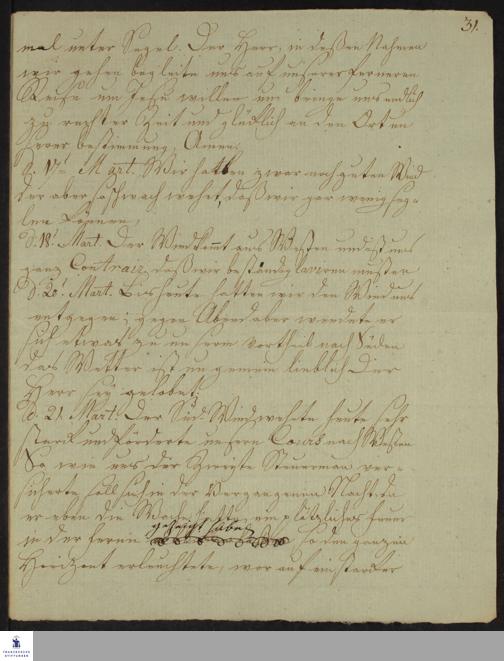 31.
mal unter Segel. Der Herr, in deßen Nahmen
wir gehen, begleite uns auf unserer ferneren
Reise um Jesu willen und bringe uns endlich
zu rechter Zeit und glücklich an den Ort un
serer bestimmung, Amen.
d. 17t Mart. Wir hatten zwar noch guten Wind
der aber so schwach wehet, daß wir gar wenig seg-
len können,
d. 18t Mart. Der Wind kommt aus Westen und ist uns
ganz Contrair, daß wir beständig laviren müsten
d. 20t Mart. Bis heute hatten wir den Wind uns
entgegen; gegen Abend aber wendete er
sich etwas zu unserm Vortheil nach Süden
das Wetter ist ungemein lieblich Der
Herr sey gelobet,
d. 21. Mart. Der Süd-Wind wehte heute sehr
starck und förderte unsern Cours nach Westen
So wie uns der Zweyte Steuerman ver-
sicherte, soll sich in der vergangenen Nacht, da
er eben die Wache hatte, ein plötzliches feuer
in der ferne gezeigt haben, so den ganzen
Horizont erleuchtete, worauf ein starcker
FRANCKESCHE STIFTUNGEN